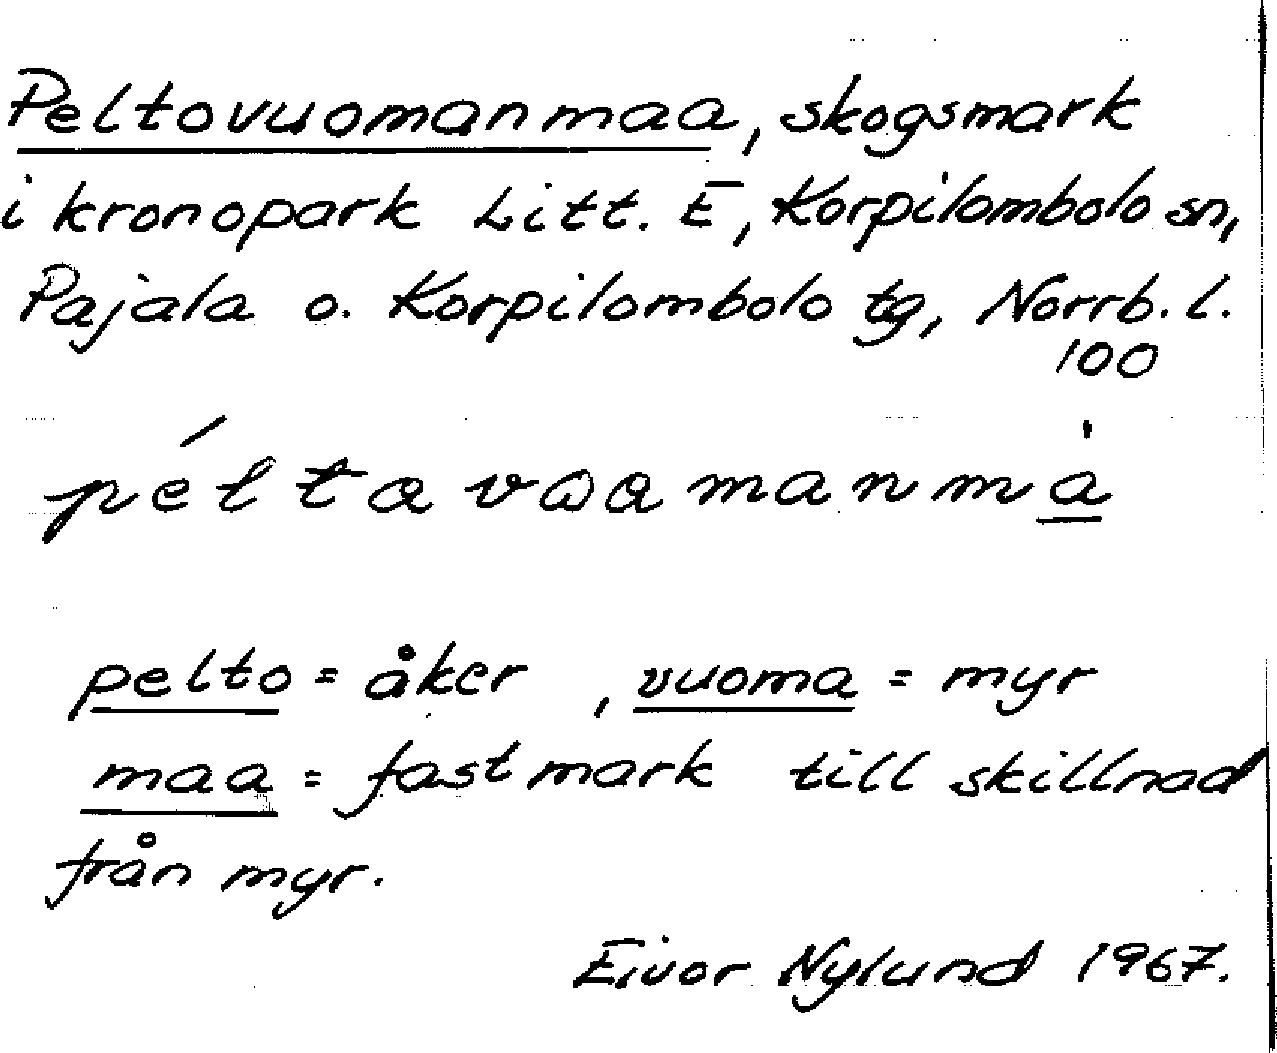 Peltovuomanmaa, skogsmark
i kronopark Litt. E, Korpilombolo sn,
Pajala o. Korpilombolo tg, Norrb. l.
100
pelto = åker , vuoma = myr
maa = fast mark till skillnad
från myr.
Eivor Nylund 1967.